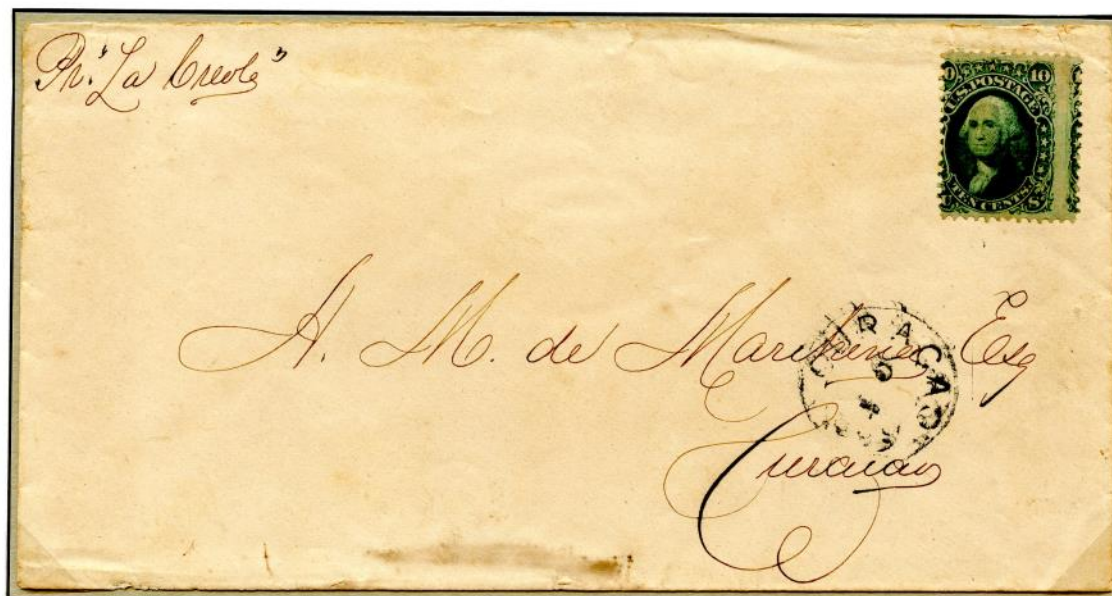 Pr. "La Creole"
10
U.S. POSTAGE
TEN CENTS.
A. M. de Marchena Esq
CURACAO
Curaçao